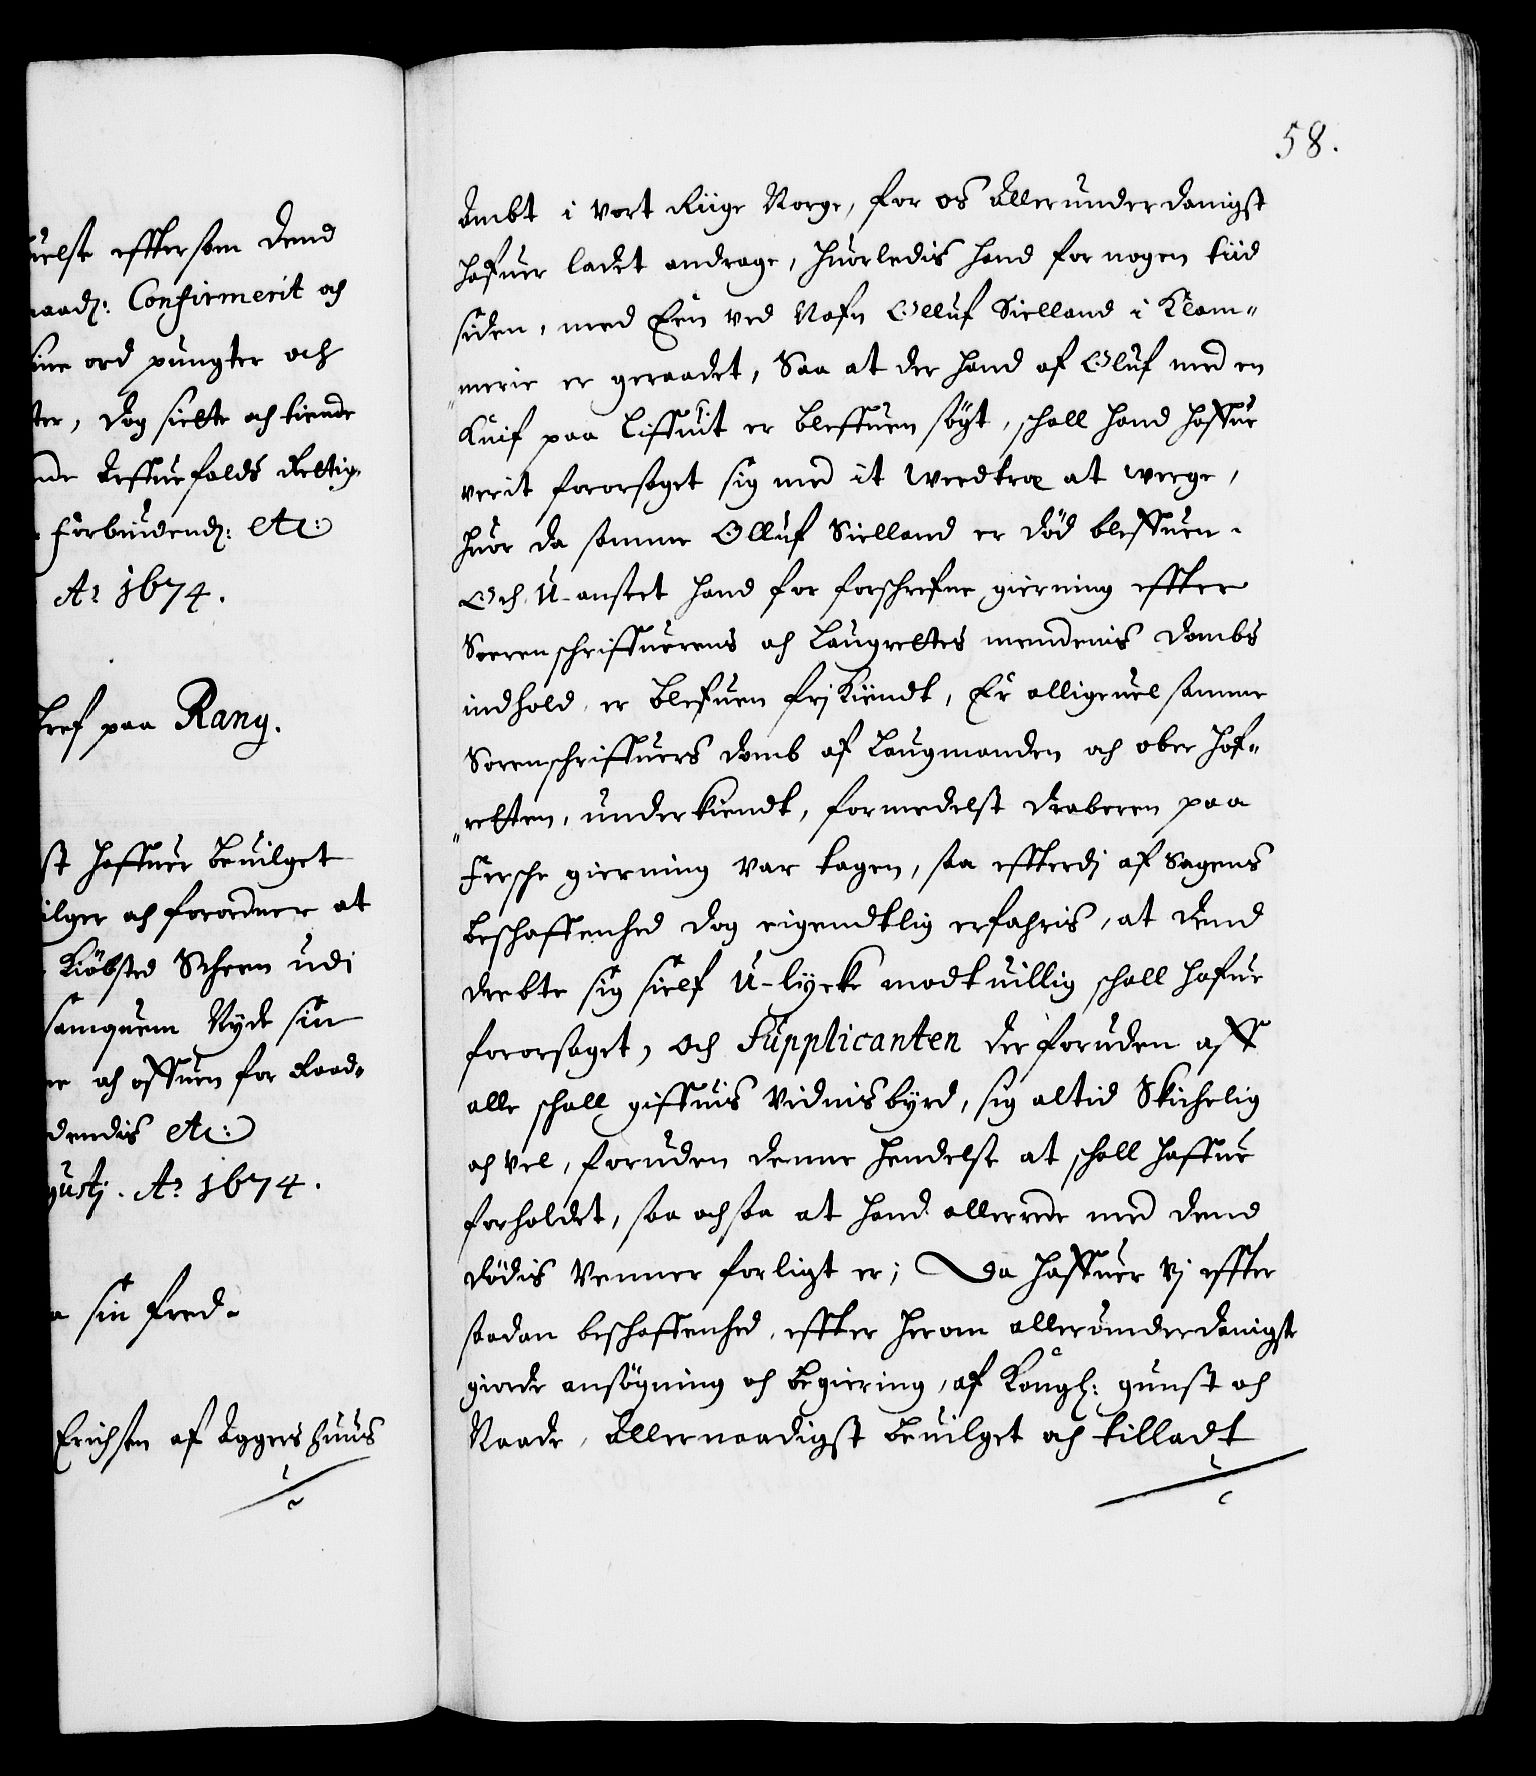 uelse effter som dend
naad: Confirmerit och
sine ord pungter och
ter, dog siette och tiende
nde Arfuefalds Rettig-
Forbiudend: etc:
Aº 1674.
bref paa Rang.
st haffuer beuilget
ilger och forordner at
Kiöbsted Scheen udi
samquem Nyde sin
er och offuen for Raad-
dendis etc:
gustj. Aº 1674.
a sin fred-
Erichsen af Aggershuus
58.
Ambt i vort Riige Norge, for os Allerunderdanigst
hafuer ladet andrage, huorledis hand for nogen tiid
siden, med Een ved Nafn Olluf Sielland i Klam-
merie er geraadet, Saa at der hand af Oluf med en
Knif paa Liffuit er bleffuen søgt, schall hand haffue
verit foraarsaget sig med it Weedtræ at werge,
huor da samme Olluf Sielland er død bleffuen.
Och U-anseet hand for forschrefne gierning effter
Sorenschriffuerens och Laugrettes mendenis dombs
indhold, er blefuen frj kiendt, Er alligeuel samme
Sorenschriffuers domb af Laugmanden och ober hof-
retten, underkiendt, formedelst draberen paa
Fersche gierning var tagen, saa effterdj af Sagens
beschaffenhed dog eigendtlig erfahris, at dend
drebte sig sielf U-lycke modtuillig schall hafue
foraarsaget, och Supplicanten der foruden aff
alle schall giffuis vidnisbyrd, sig altid Skichelig
och vel, foruden denne hendelse at schall haffue
forholdet, saa och saa at hand allerrede med dend
dødis Venner forligt er; Da haffuer Vj effter
saadan beschaffenhed, effter herom allerunderdanigste
giorde ansøgning och begiering, af Kongl: gunst och
Naade, Allernaadigst beuilget och tilladt